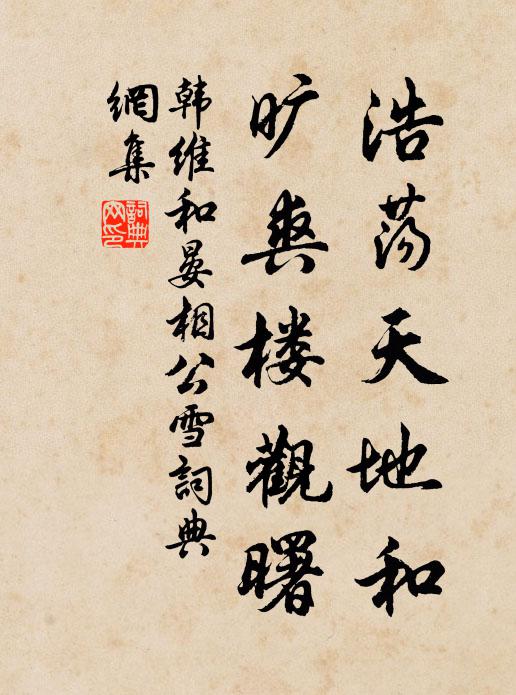 浩荡天地和
旷爽楼觀曙
韩维和晏相公雪詞典
網集
詞典
网印